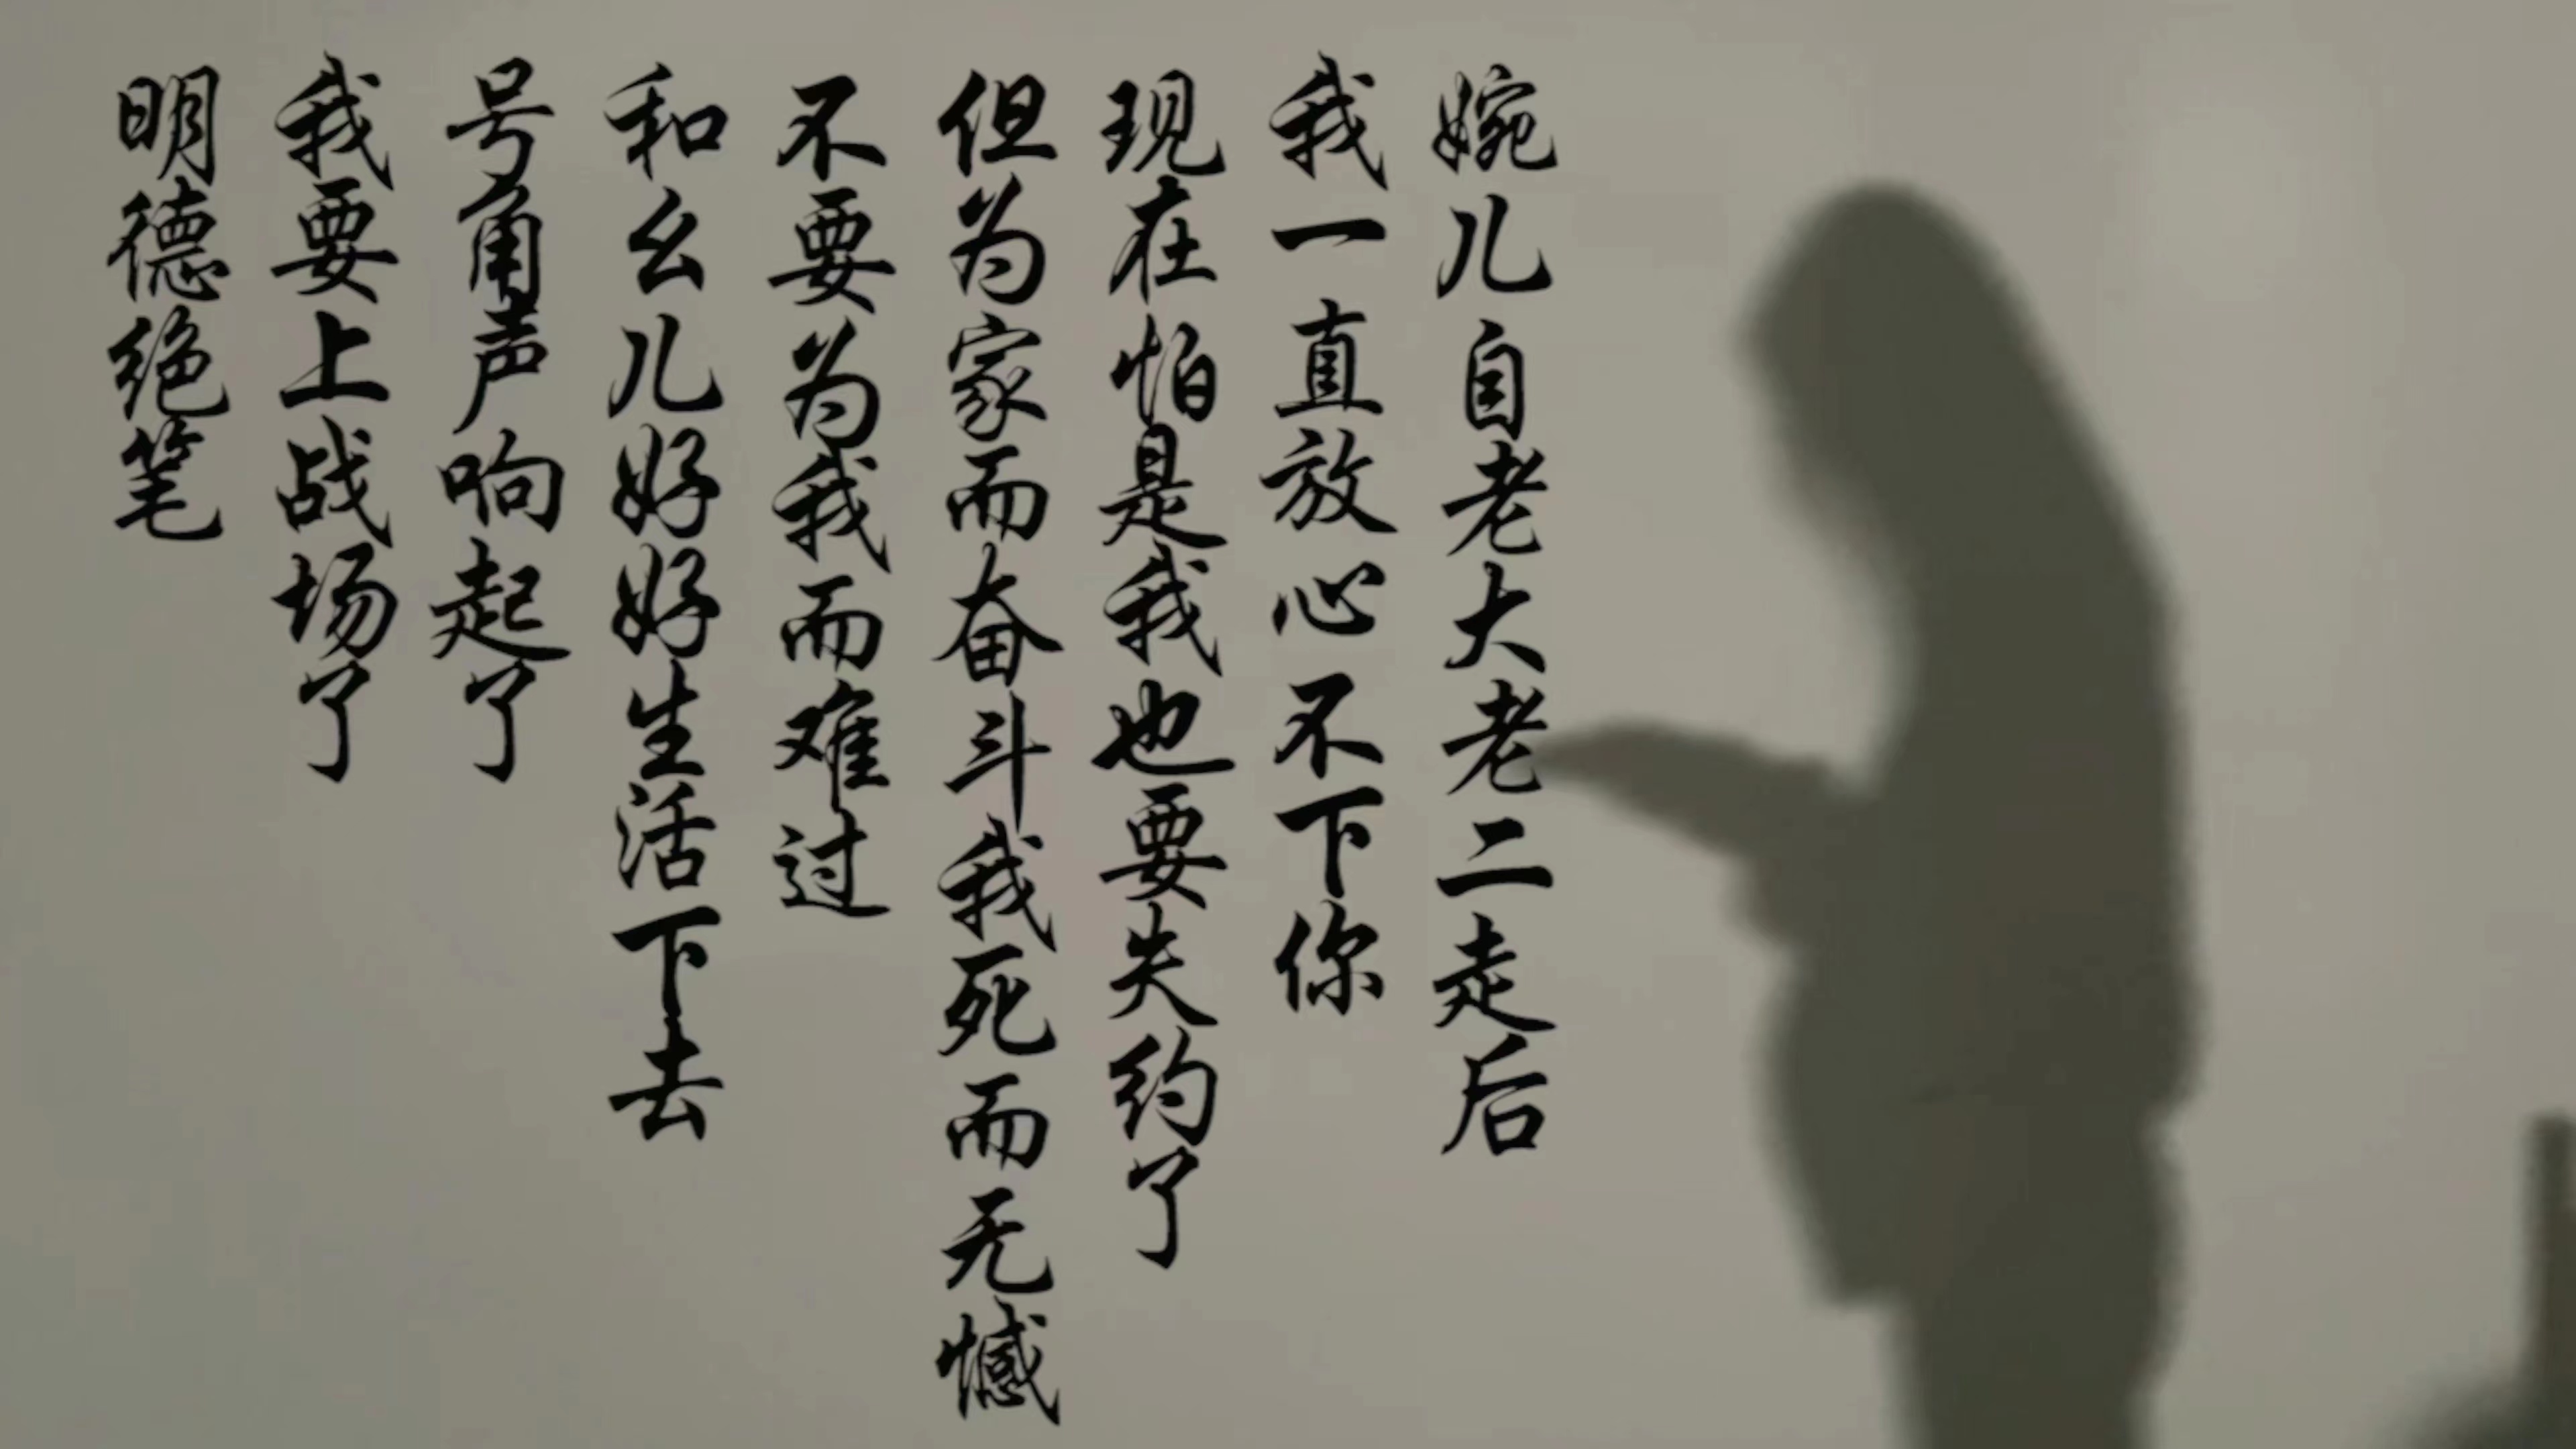 婉儿自老大老二走后
我一直放心不下你
现在怕是我也要失约了
但为家而奋斗我死而无憾
不要为我而难过
和幺儿好好生活下去
号角声响起了
我要上战场了
明德绝笔